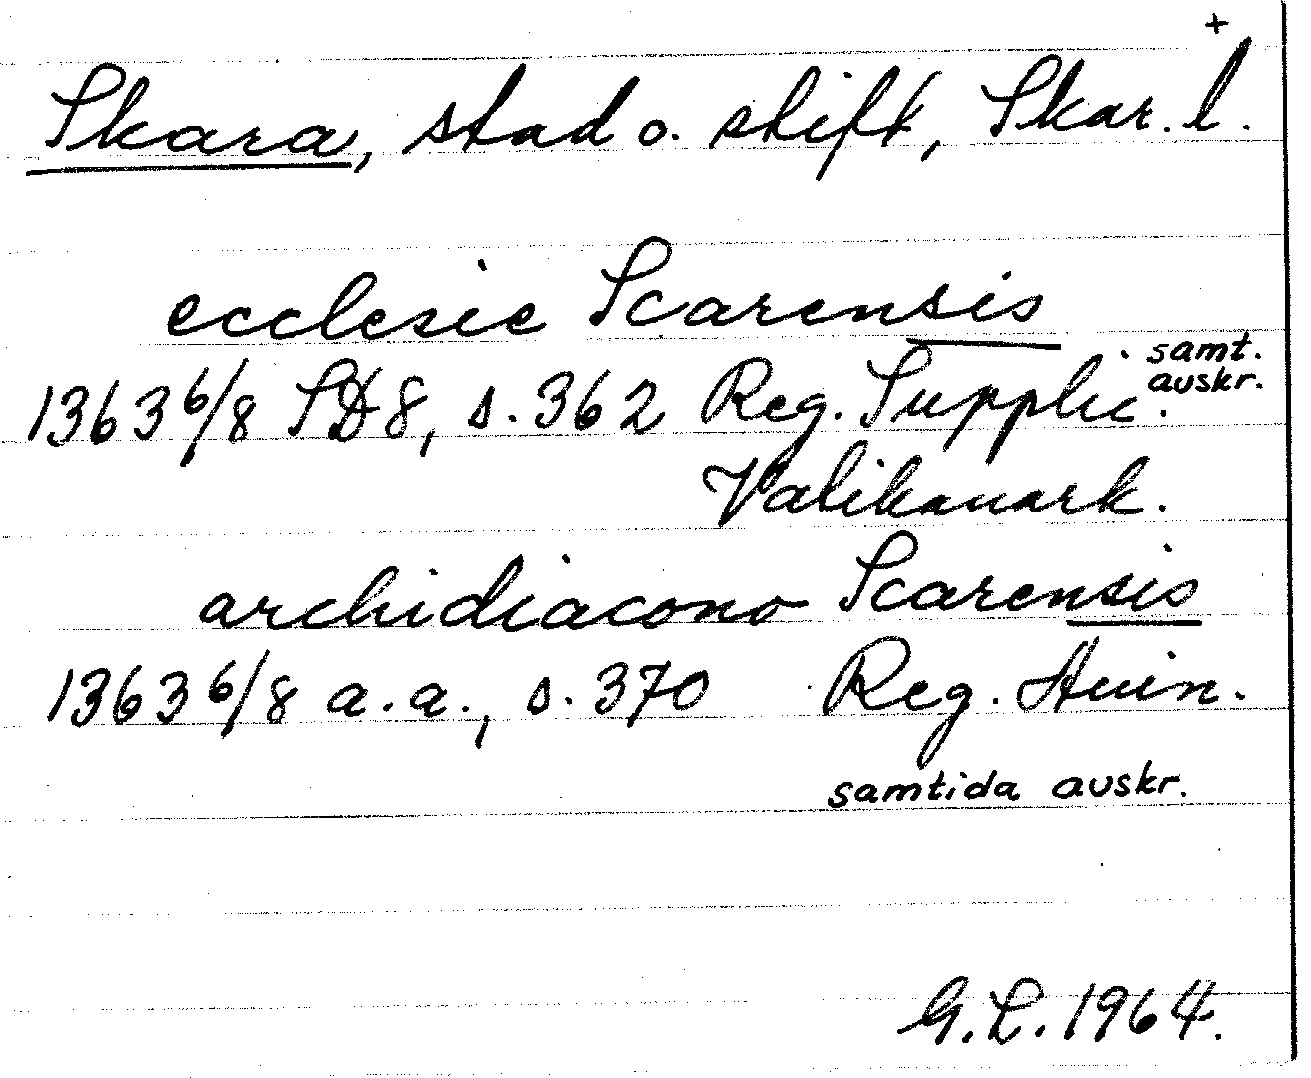 +
Skara, stad o. stift, Skar. l.
ecclesie Scarensis
1363 6/8 SD 8, s. 362 Reg. Supplic. samt. auskr.
Vatikanark.
archidiacono Scarensis
1363 6/8 a.a., s. 370 Reg. Avin.
samtida auskr.
G.L. 1964.